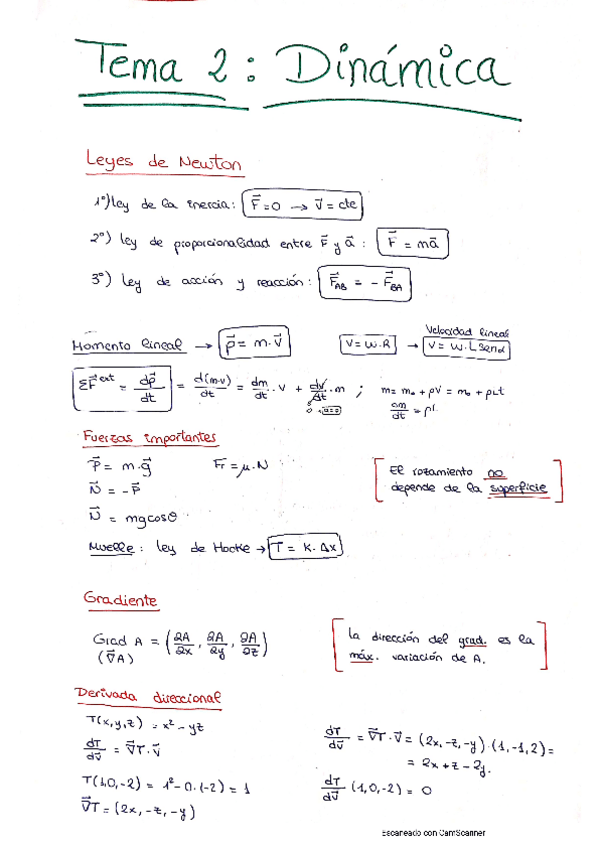 Tema 2: Dinámica
Leyes de Newton
1º) ley de la inercia: F⃗=0 → v⃗ = cte
2º) ley de proporcionalidad entre F⃗ y a⃗ : F⃗ = ma⃗
3º) ley de acción y reacción: F⃗AB = - F⃗BA
Momento lineal → p⃗ = m·v⃗
V = ω.R → Velocidad lineal V = ω.L senα
ΣF⃗ext = dp⃗/dt = d(m·v)/dt = dm/dt · v + dv/dt · m ; m = m₀ + ρV = m₀ + ρLt
0 → a=0
dm/dt = ρL
Fuerzas importantes
P⃗ = m·g⃗ Fr = μ·N
N⃗ = -P⃗
N⃗ = mgcosθ
[El rozamiento no
depende de la superficie]
Muelle: ley de Hooke → T = K·Δx
Gradiente
Grad A = (∂A/∂x, ∂A/∂y, ∂A/∂z)
(∇⃗A)
[la dirección del grad. es la
máx. variación de A.]
Derivada direccional
T(x,y,z) = x² - yz
dT/dv⃗ = ∇⃗T·v⃗
T(1,0,-2) = 1² - 0·(-2) = 1
∇⃗T = (2x, -z, -y)
dT/dv⃗ = ∇⃗T·v⃗ = (2x, -z, -y)·(1, -1, 2) =
= 2x + z - 2y.
dT/dv⃗ (1,0,-2) = 0
Escaneado con CamScanner